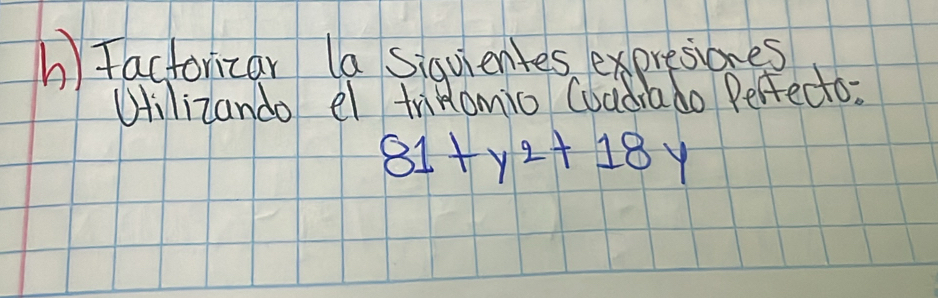 h) Factorizar la siguientes expresiones
Utilizando el trinomio Cuadrado Perfecto:
81 + y2 + 18 y